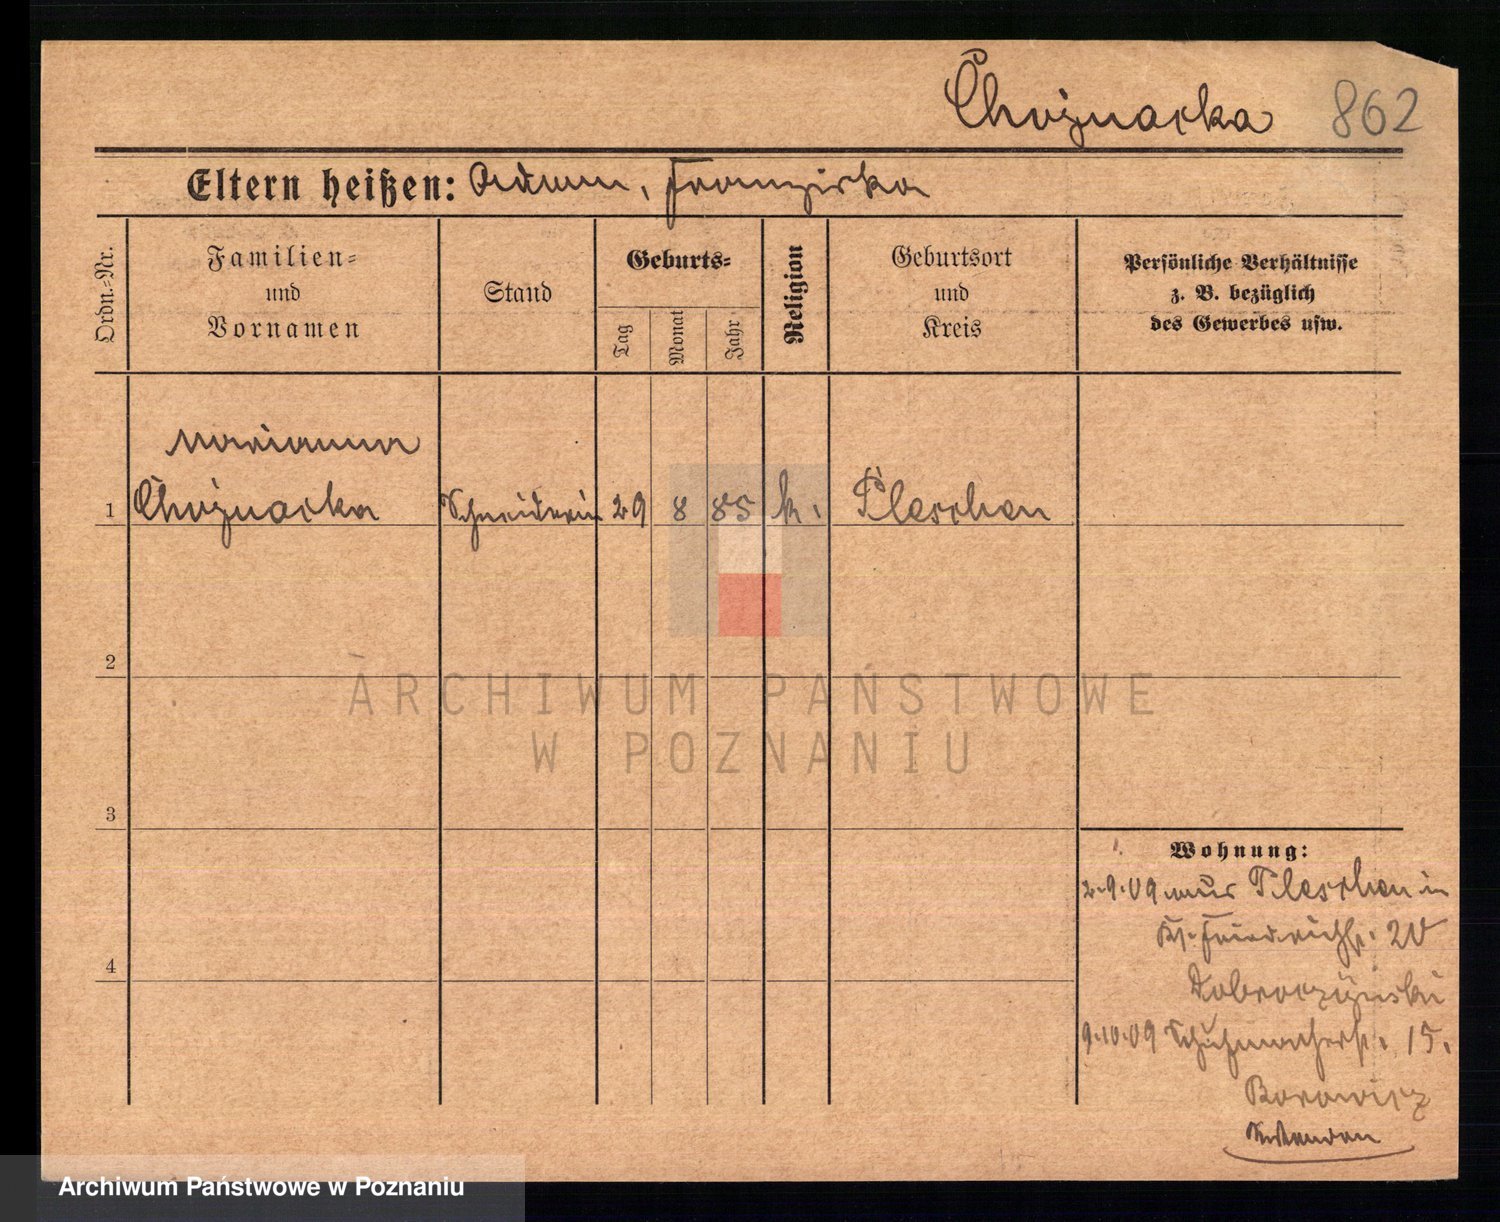 Choynacka 862
Eltern heißen: Adam, Franziska
Ordn.-Nr.
Familien-
und
Vornamen
Stand
Geburts-
Tag
Monat
Jahr
Religion
Geburtsort
und
Kreis
Persönliche Verhältnisse
z. B. bezüglich
des Gewerbes usw.
Marianna
1 Choynacka Schneiderin 29 8 85 k. Pleschen
2
3
4
Wohnung:
2.9.09 aus Pleschen in
20
9.10.09 Schuhmacherstr. 15.
Borowicz
ARCHIWUM PAŃSTWOWE
W POZNANIU
Archiwum Państwowe w Poznaniu